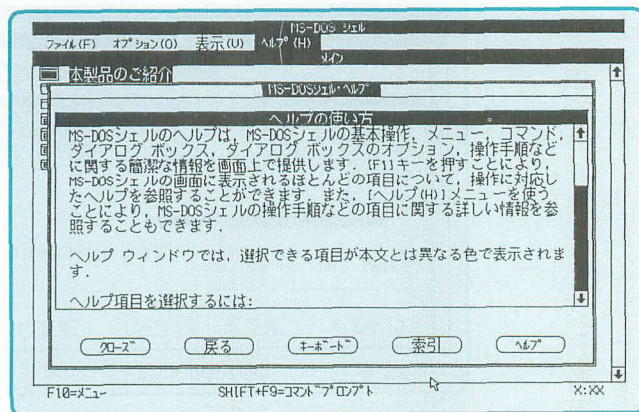 MS-DOS シェル
ファイル(F) オプション(O) 表示(U) ヘルプ(H)
メイン
本製品のご紹介
MS-DOSシェル・ヘルプ
ヘルプの使い方
MS-DOSシェルのヘルプは, MS-DOSシェルの基本操作, メニュー, コマンド,
ダイアログ ボックス, ダイアログ ボックスのオプション, 操作手順など
に関する簡潔な情報を画面上で提供します. [F1]キーを押すことにより,
MS-DOSシェルの画面に表示されるほとんどの項目について, 操作に対応し
たヘルプを参照することができます. また, [ヘルプ(H)]メニューを使う
ことにより, MS-DOSシェルの操作手順などの項目に関する詳しい情報を参
照することもできます.
ヘルプ ウィンドウでは, 選択できる項目が本文とは異なる色で表示されま
す.
ヘルプ項目を選択するには:
クローズ 戻る キーボード 索引 ヘルプ
F10=メニュー SHIFT+F9=コマンドプロンプト X:XX